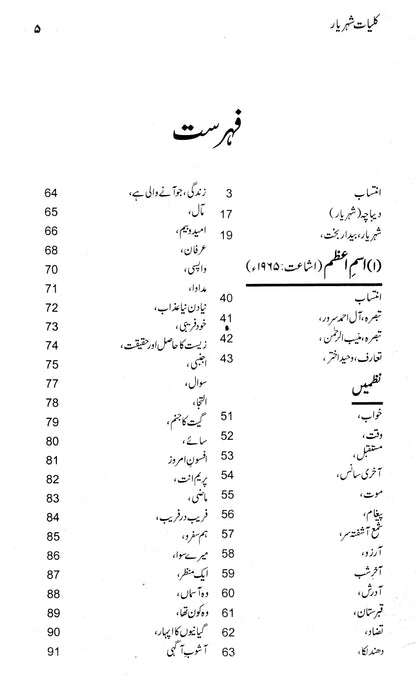 کلیات شہریار ۵
فہرست
انتساب 3
دیباچہ (شہریار) 17
شہریار، بیدار بخت، 19
(۱) اسمِ اعظم (اشاعت: ۱۹۶۵ء)
انتساب 40
تبصرہ، آل احمد سرور، 41
تبصرہ، منیب الرحمٰن، 42
تعارف، وحید اختر، 43
نظمیں
خواب، 51
وقت، 52
مستقبل، 53
آخری سانس، 54
موت، 55
پیغام، 56
شمع آشفتہ سر، 57
آرزو، 58
آخرِ شب 59
آدرش، 60
قبرستان، 61
تضاد، 62
دھندلکا، 63
زندگی، جو آنے والی ہے، 64
مآل، 65
امید و بیم، 66
عرفان، 68
واپسی، 70
مداوا، 71
نیا دن نیا عذاب، 72
خود فریبی، 73
زیست کا حاصل اور حقیقت، 74
اجنبی، 75
سوال، 77
التجا، 78
گیت کا جنم، 79
سائے، 80
افسونِ امروز 81
پریم انت، 82
ماضی، 83
فریب در فریب، 84
ہم سفرو، 85
میرے سوا، 86
ایک منظر، 87
وہ آسماں، 88
وہ کون تھا، 89
گیانیوں کا اپہار، 90
آشوب آگہی، 91